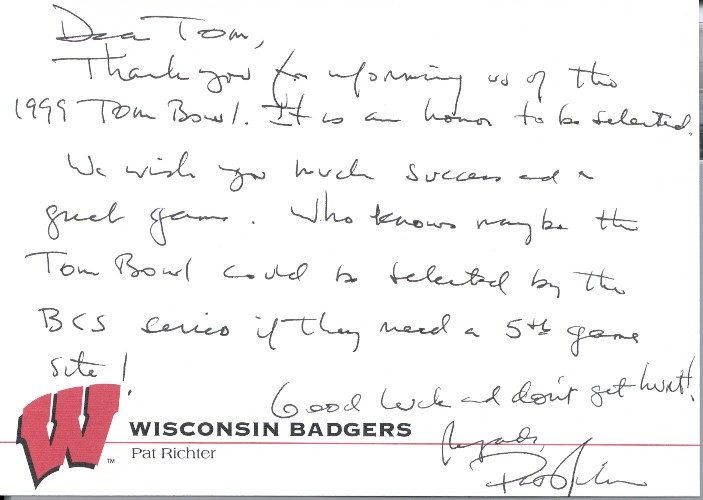 Dear Tom,
Thank you for informing us of the
1999 Tom Bowl. It is an honor to be selected.
We wish you much success and a
great game. Who knows maybe the
Tom Bowl could be selected by the
BCS series if they need a 5th game
site!
Good luck and don't get hurt!
Regards,
Pat Richter
W
TM
WISCONSIN BADGERS
Pat Richter